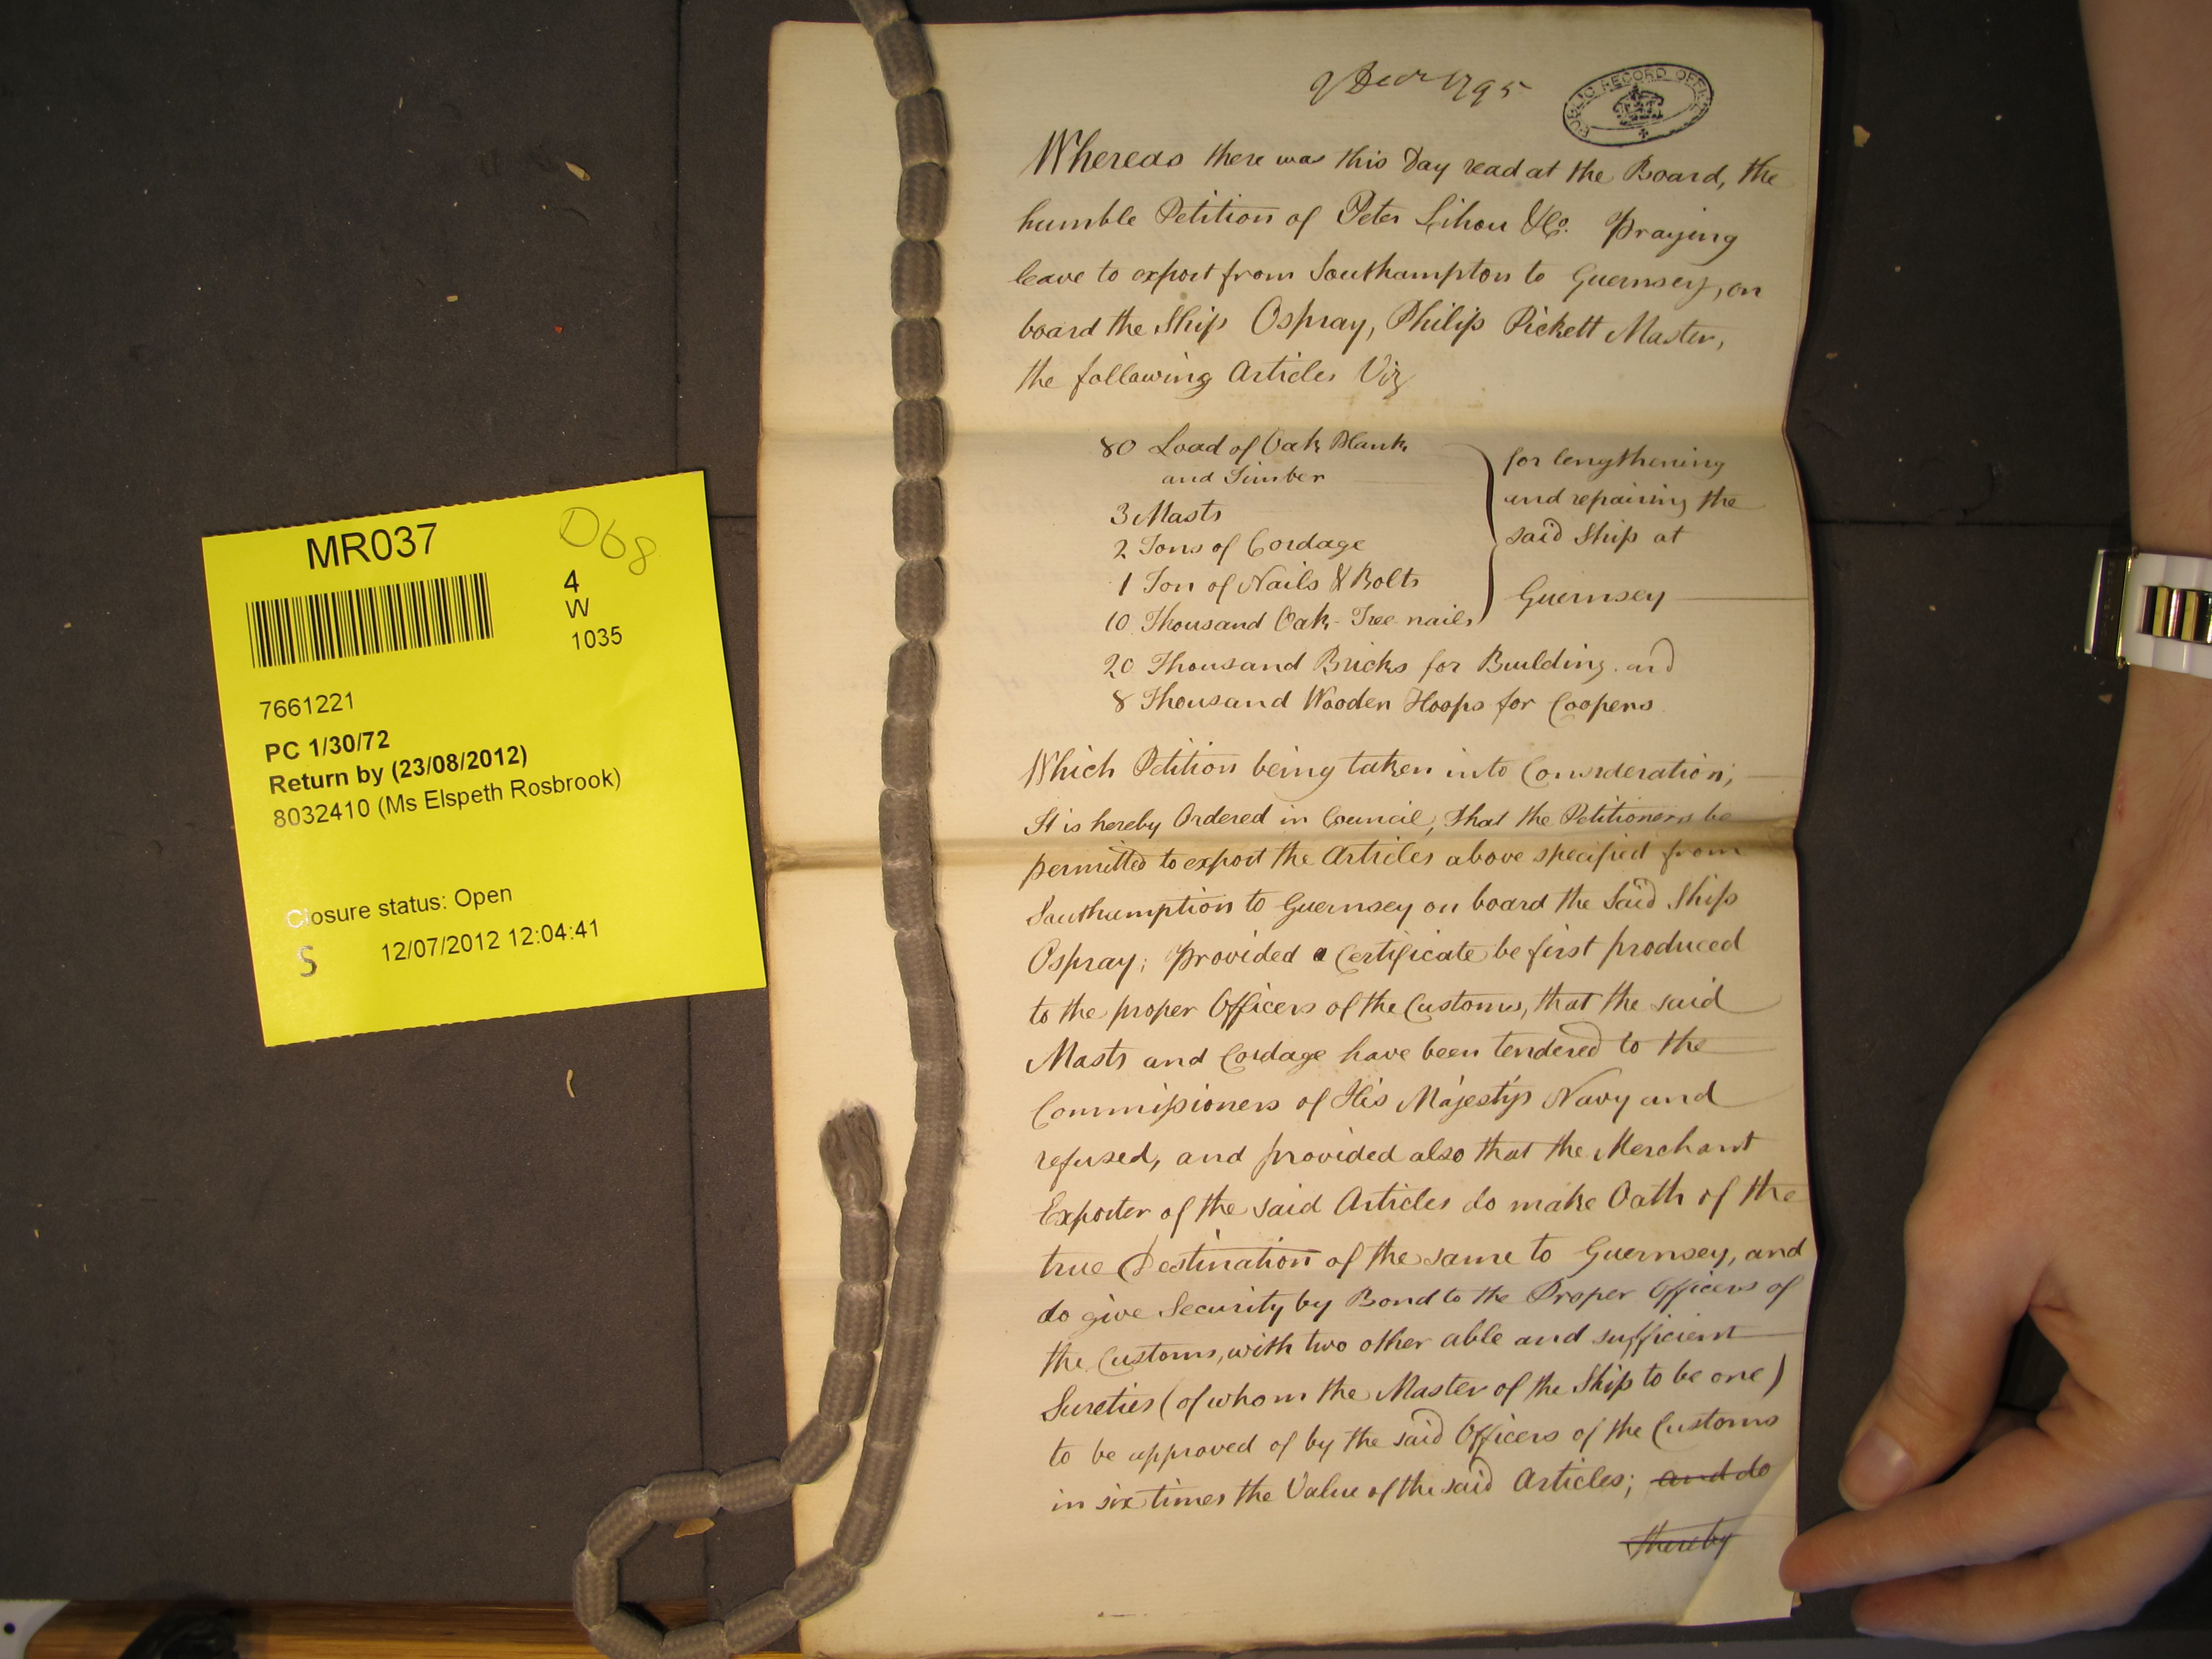 MR037
D68
4
W
1035
7661221
PC 1/30/72
Return by (23/08/2012)
8032410 (Ms Elspeth Rosbrook)
Closure status: Open
S 12/07/2012 12:04:41
9 Decr 1795
PUBLIC RECORD OFFICE
Whereas there was this Day read at the Board, the
humble Petition of Peter Lihou & Co. Praying
leave to export from Southampton to Guernsey, on
board the Ship Ospray, Philip Pickett Master,
the following Articles Viz
80 Load of Oak Plank
and Timber
3 Masts
2 Tons of Cordage
1 Ton of Nails & Bolts
10 Thousand Oak Tree nails
for lengthening
and repairing the
said Ship at
Guernsey
20 Thousand Bricks for Building and
8 Thousand Wooden Hoops for Coopers
Which Petition being taken into Consideration;
It is hereby Ordered in Council, That the Petitioners be
permitted to export the Articles above specified from
Southamption to Guernsey on board the Said Ship
Ospray; Provided a Certificate be first produced
to the proper Officers of the Customs, that the said
Masts and Cordage have been tendered to the
Commissioners of His Majesty's Navy and
refused, and provided also that the Merchant
Exporter of the said Articles do make Oath of the
true Destination of the same to Guernsey, and
do give Security by Bond to the Proper Officers of
the Customs, with two other able and sufficient
Sureties (of whom the Master of the Ship to be one)
to be approved of by the said Officers of the Customs
in six times the Value of the said Articles; and do
thereby